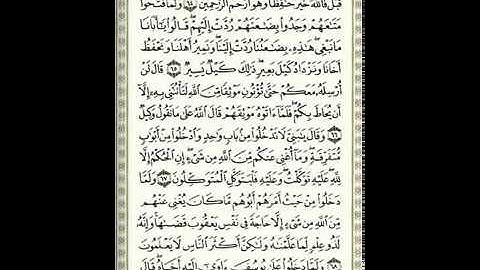 قَبْلُ فَٱللَّهُ خَيْرٌ حَٰفِظًا وَهُوَ أَرْحَمُ ٱلرَّٰحِمِينَ ٦٤ وَلَمَّا فَتَحُوا۟
مَتَٰعَهُمْ وَجَدُوا۟ بِضَٰعَتَهُمْ رُدَّتْ إِلَيْهِمْ ۖ قَالُوا۟ يَٰٓأَبَانَا
مَا نَبْغِى ۖ هَٰذِهِۦ بِضَٰعَتُنَا رُدَّتْ إِلَيْنَا ۖ وَنَمِيرُ أَهْلَنَا وَنَحْفَظُ
أَخَانَا وَنَزْدَادُ كَيْلَ بَعِيرٍ ۖ ذَٰلِكَ كَيْلٌ يَسِيرٌ ٦٥ قَالَ لَنْ
أُرْسِلَهُۥ مَعَكُمْ حَتَّىٰ تُؤْتُونِ مَوْثِقًا مِّنَ ٱللَّهِ لَتَأْتُنَّنِى بِهِۦٓ إِلَّآ
أَن يُحَاطَ بِكُمْ ۖ فَلَمَّآ ءَاتَوْهُ مَوْثِقَهُمْ قَالَ ٱللَّهُ عَلَىٰ مَا نَقُولُ وَكِيلٌ
٦٦ وَقَالَ يَٰبَنِىَّ لَا تَدْخُلُوا۟ مِنۢ بَابٍ وَٰحِدٍ وَٱدْخُلُوا۟ مِنْ أَبْوَٰبٍ
مُّتَفَرِّقَةٍ ۖ وَمَآ أُغْنِى عَنكُم مِّنَ ٱللَّهِ مِن شَىْءٍ ۖ إِنِ ٱلْحُكْمُ إِلَّا
لِلَّهِ ۖ عَلَيْهِ تَوَكَّلْتُ ۖ وَعَلَيْهِ فَلْيَتَوَكَّلِ ٱلْمُتَوَكِّلُونَ ٦٧ وَلَمَّا
دَخَلُوا۟ مِنْ حَيْثُ أَمَرَهُمْ أَبُوهُم مَّا كَانَ يُغْنِى عَنْهُم
مِّنَ ٱللَّهِ مِن شَىْءٍ إِلَّا حَاجَةً فِى نَفْسِ يَعْقُوبَ قَضَىٰهَا ۚ وَإِنَّهُۥ
لَذُو عِلْمٍ لِّمَا عَلَّمْنَٰهُ وَلَٰكِنَّ أَكْثَرَ ٱلنَّاسِ لَا يَعْلَمُونَ
٦٨ وَلَمَّا دَخَلُوا۟ عَلَىٰ يُوسُفَ ءَاوَىٰٓ إِلَيْهِ أَخَاهُ ۖ قَالَ